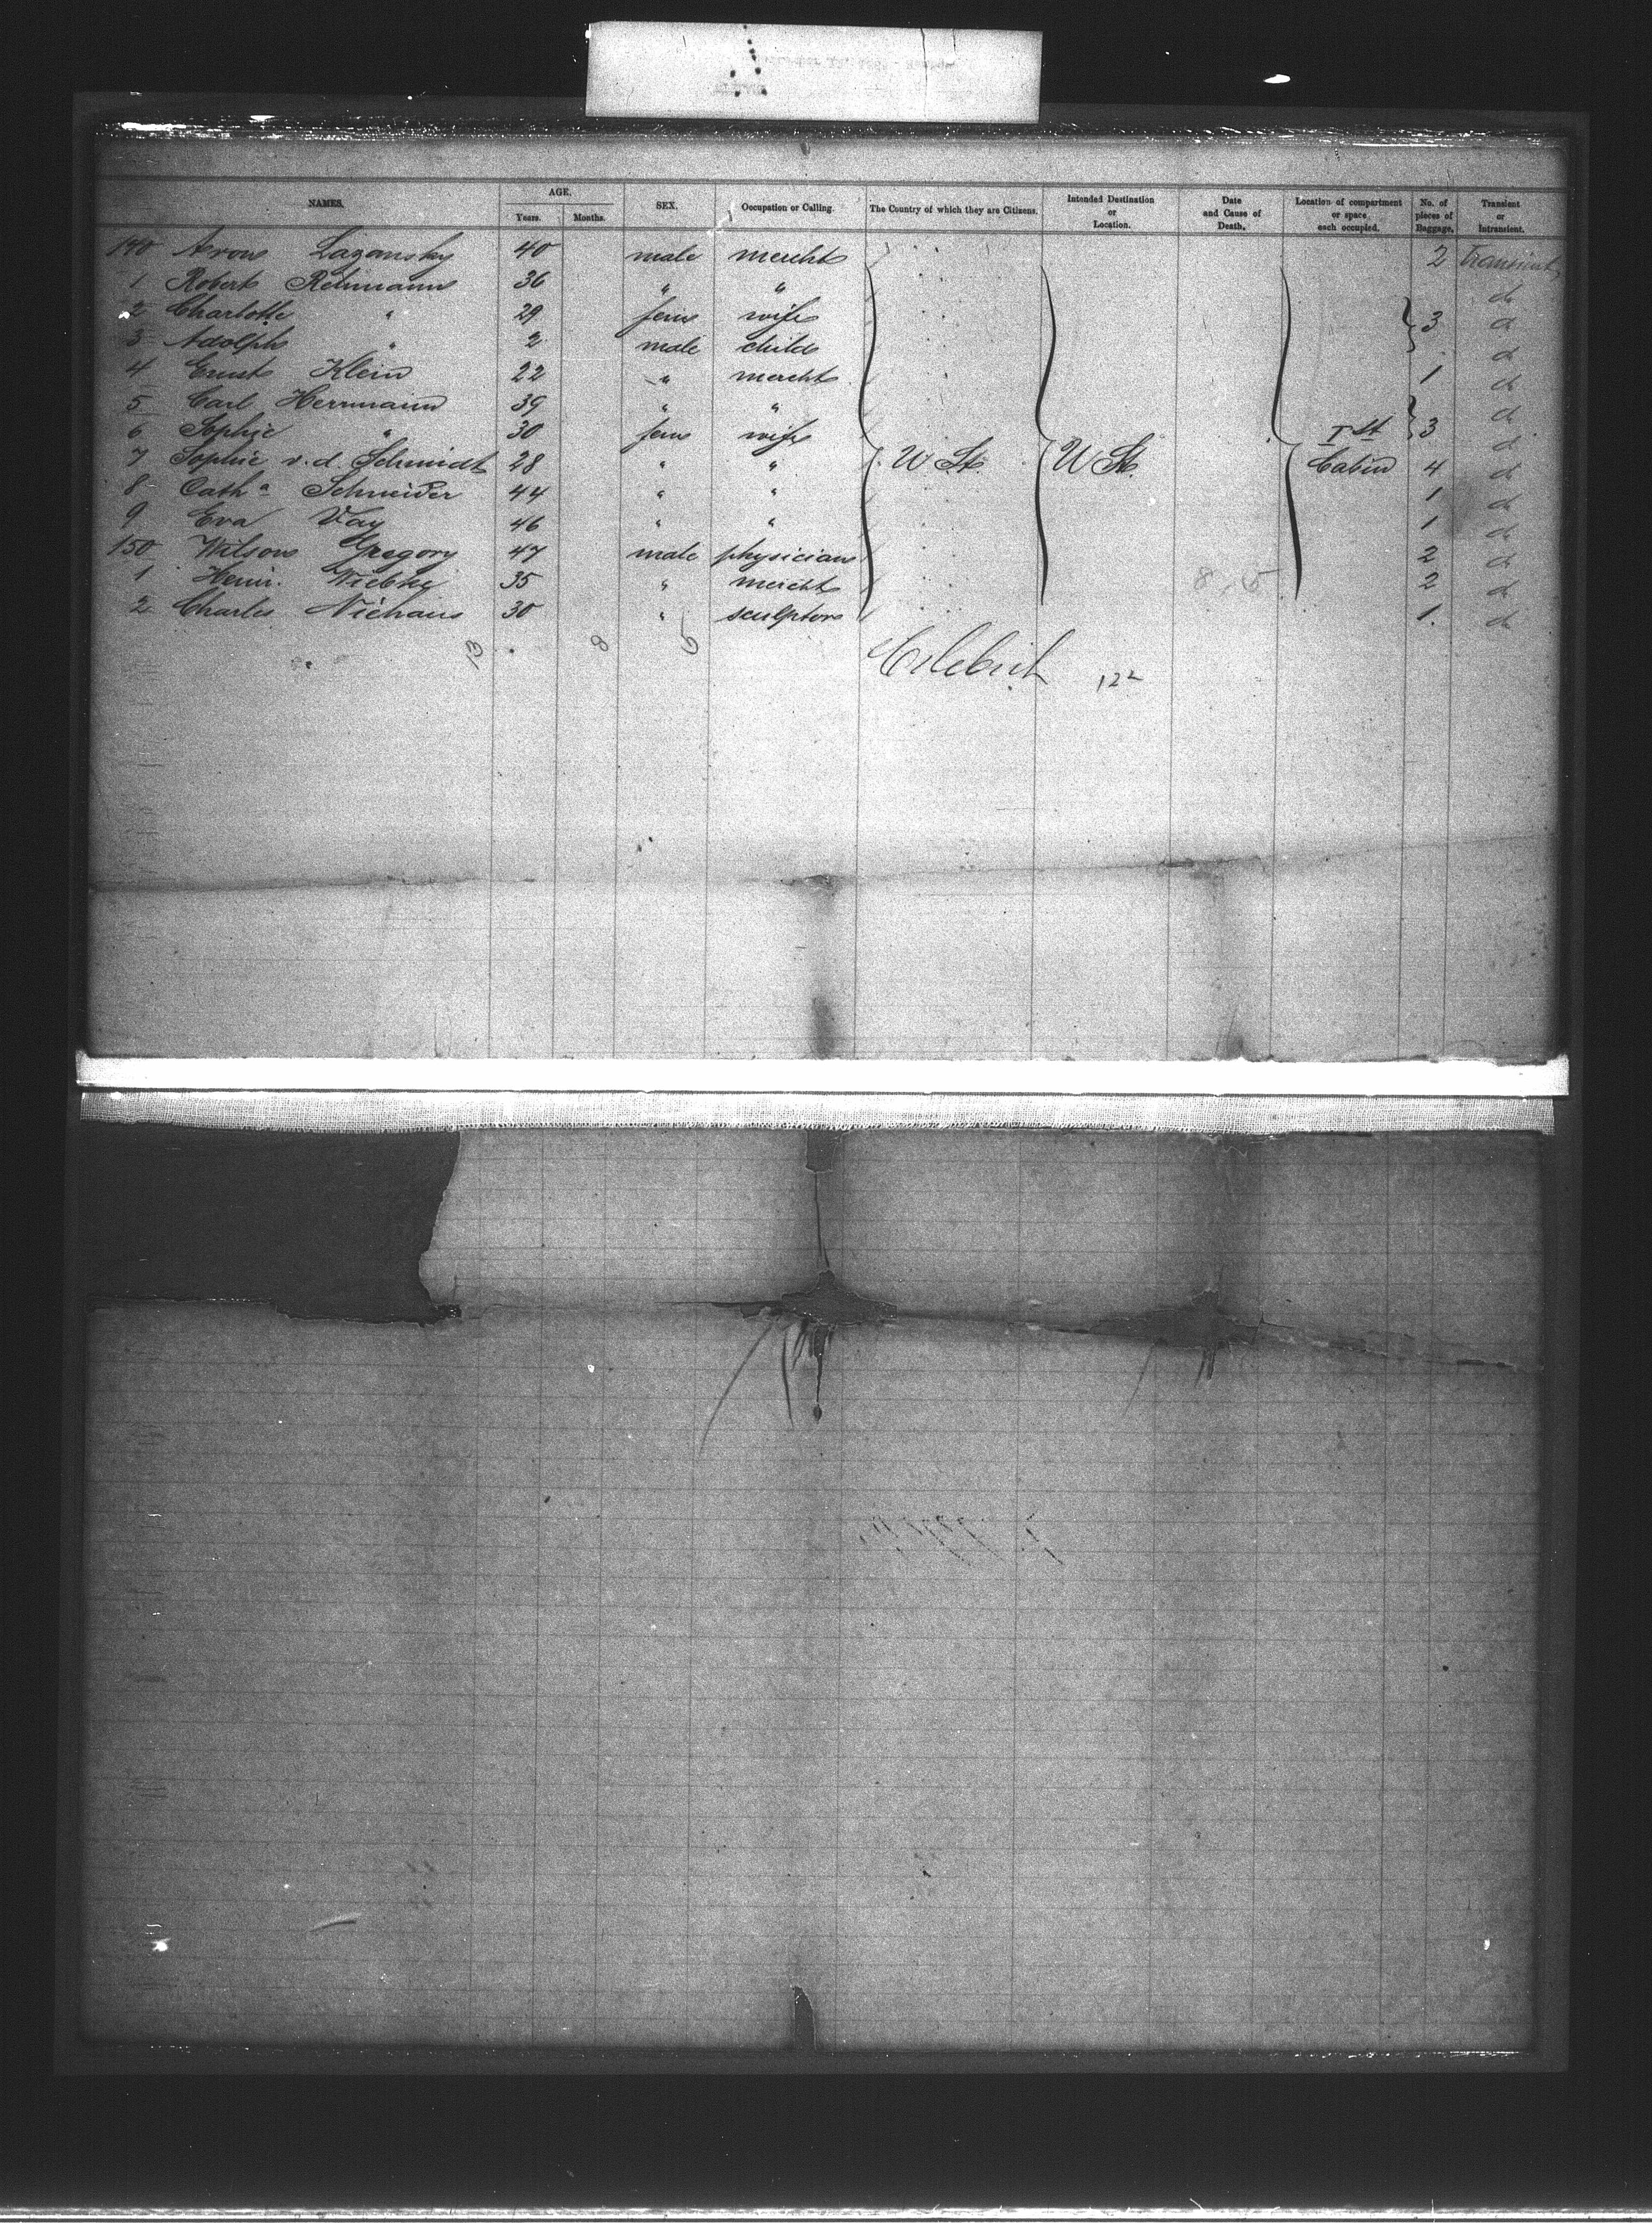 NAMES. AGE. Years. Months. SEX. Occupation or Calling. The Country of which they are Citizens. Intended Destination or Location. Date and Cause of Death. Location of compartment or space each occupied. No. of pieces of Baggage. Transient or Intransient.
140 Aron Lazansky 40 male mercht 2 Transient
1 Robert Rehmann 36 " " do
2 Charlotte " 29 fem wife 3 do
3 Adolph " 2 male child do
4 Ernst Klein 22 " mercht 1 do
5 Carl Herrmann 39 " " do
6 Sophie " 30 fem wife Ist 3 do
7 Sophie v. d. Schmidt 28 " " U St. U St. Cabin 4 do
8 Cath a Schneider 44 " " 1 do
9 Eva Vay 46 " " 1 do
150 Wilson Gregory 47 male physician 2 do
1 Heinr. Wiebke 35 " mercht 8 5 2 do
2 Charles Niehaus 30 " sculptor 1. do
13 8 5
122